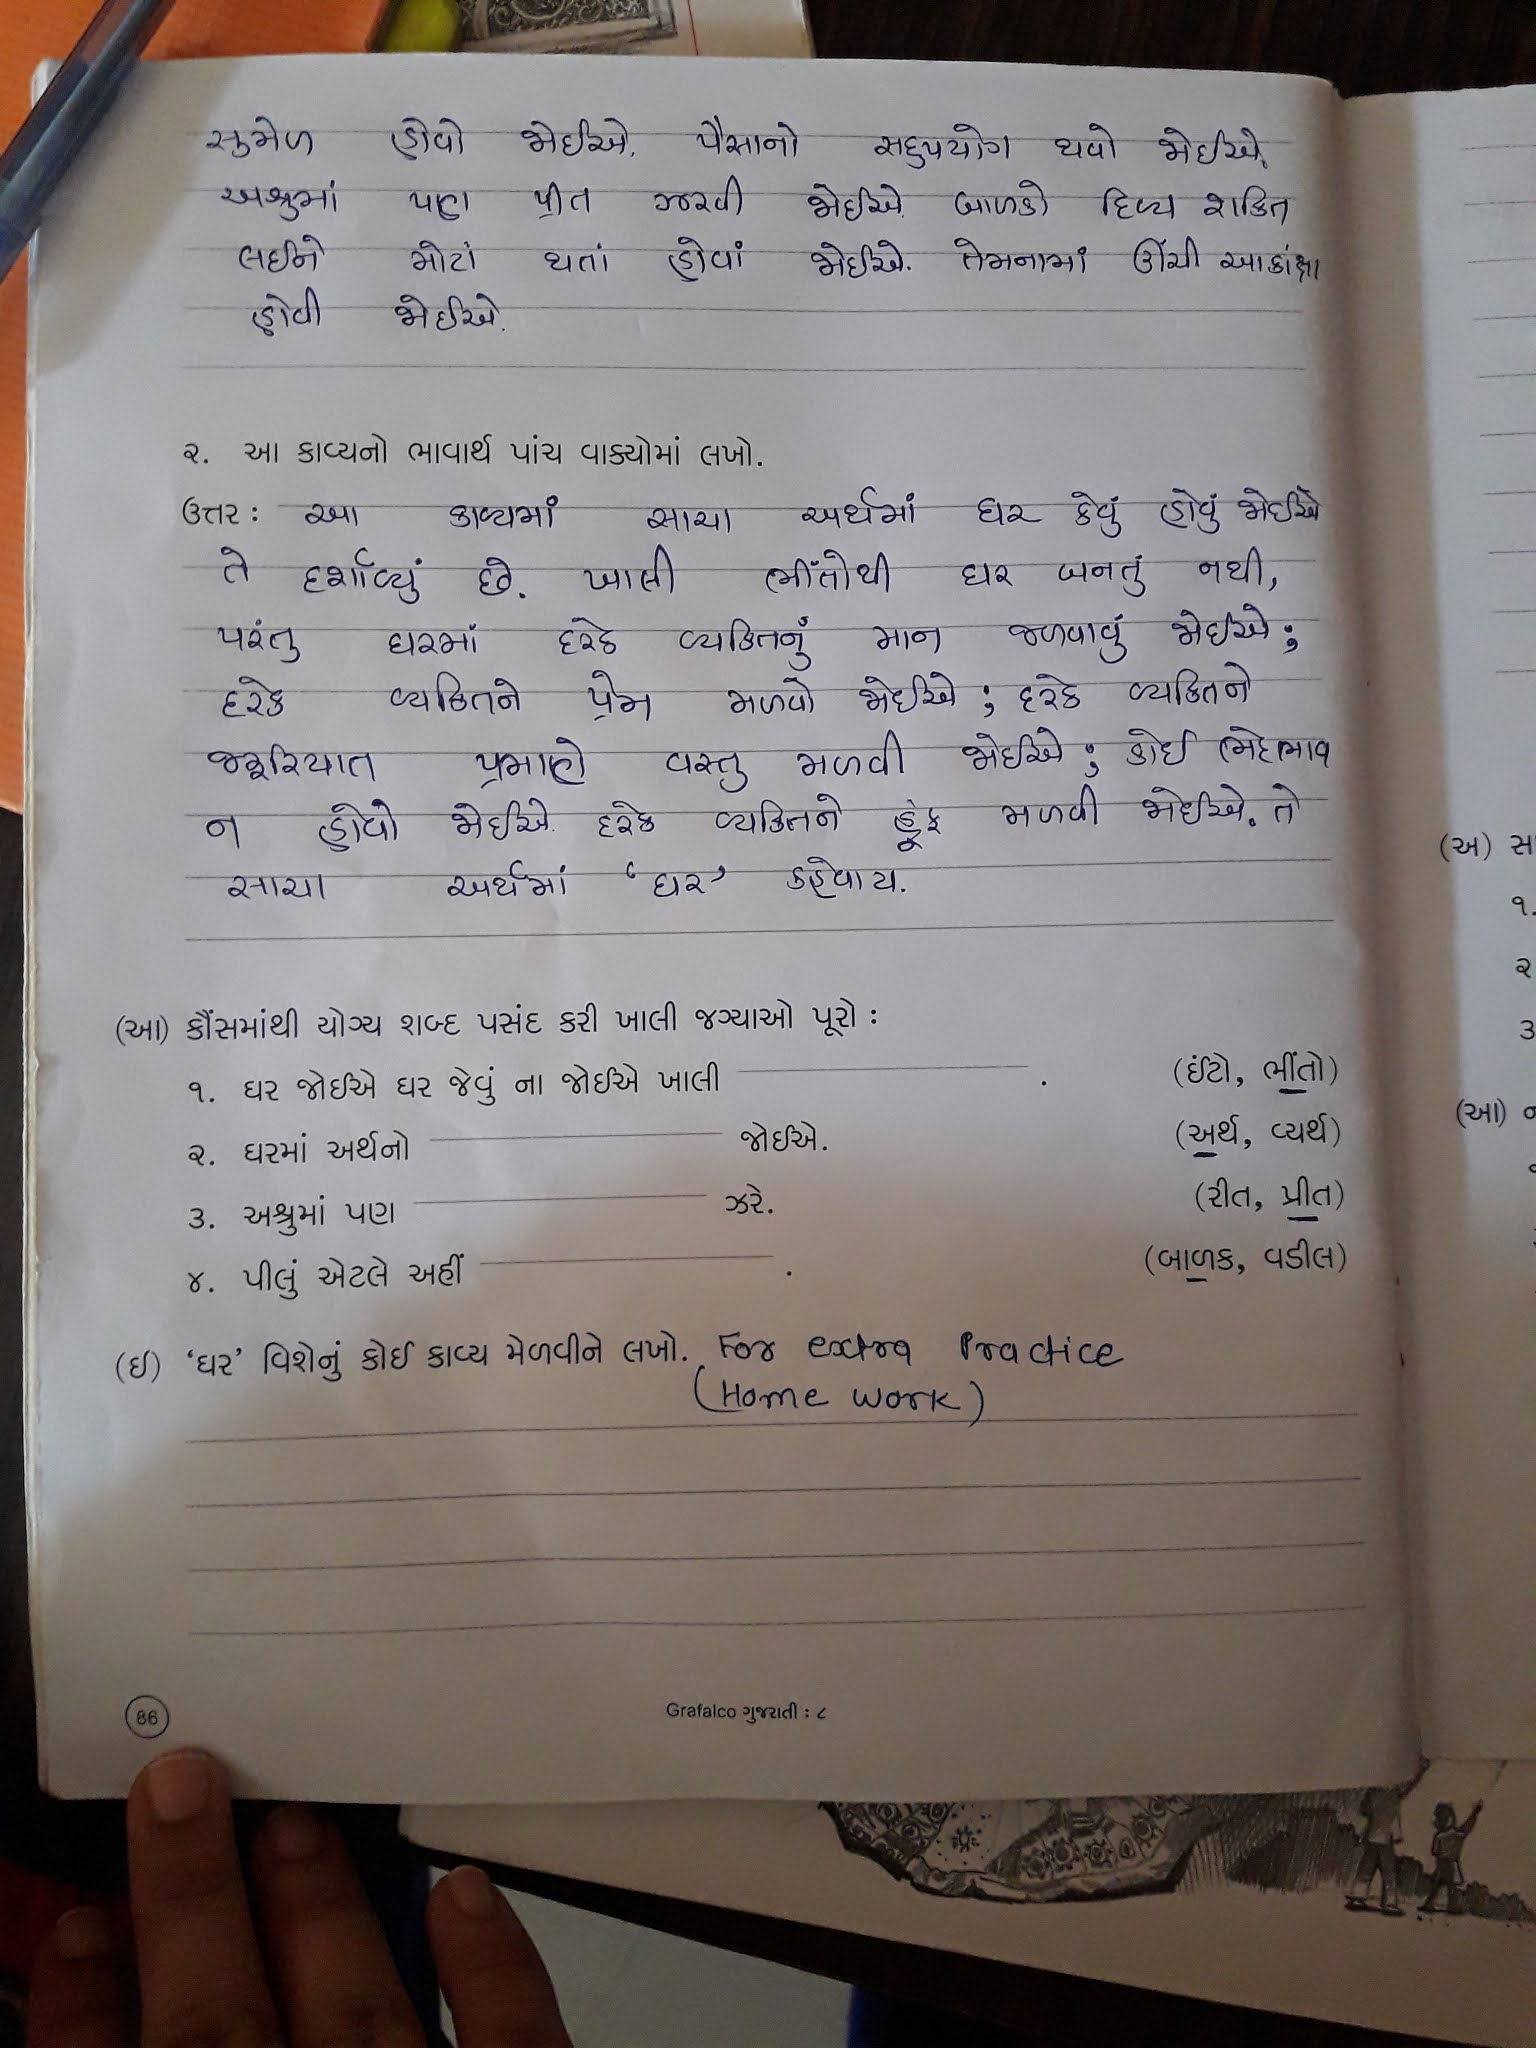 સુમેળ હોવો જોઈએ. પૈસાનો સદુપયોગ થવો જોઈએ.
અશ્રુમાં પણ પ્રીત ઝરવી જોઈએ. બાળકો દિવ્ય શકિત
લઈને મોટાં થતાં હોવાં જોઈએ. તેમનામાં ઊંચી આકાંક્ષા
હોવી જોઈએ.
૨. આ કાવ્યનો ભાવાર્થ પાંચ વાક્યોમાં લખો.
ઉત્તર : આ કાવ્યમાં સાચા અર્થમાં ઘર કેવું હોવું જોઈએ
તે દર્શાવ્યું છે. ખાલી ભીંતોથી ઘર બનતું નથી,
પરંતુ ઘરમાં દરેક વ્યકિતનું માન જળવાવું જોઈએ ;
દરેક વ્યકિતને પ્રેમ મળવો જોઈએ ; દરેક વ્યકિતને
જરૂરિયાત પ્રમાણે વસ્તુ મળવી જોઈએ ; કોઈ ભેદભાવ
ન હોવો જોઈએ. દરેક વ્યકિતને હૂંફ મળવી જોઈએ. તો
સાચા અર્થમાં ‘ઘર’ કહેવાય.
(આ) કૌંસમાંથી યોગ્ય શબ્દ પસંદ કરી ખાલી જગ્યાઓ પૂરો :
૧. ઘર જોઈએ ઘર જેવું ના જોઈએ ખાલી ______ . (ઈંટો, ભીંતો)
૨. ઘરમાં અર્થનો ______ જોઈએ. (અર્થ, વ્યર્થ)
૩. અશ્રુમાં પણ ______ ઝરે. (રીત, પ્રીત)
૪. પીલું એટલે અહીં ______ . (બાળક, વડીલ)
(ઇ) ‘ઘર’ વિશેનું કોઈ કાવ્ય મેળવીને લખો. For extra Practice
(Home work)
86
Grafalco ગુજરાતી : ૮
(અ) સ
૧.
૨
૩
(આ) ન